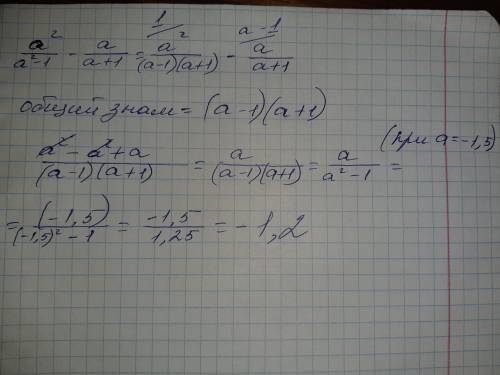 a²/(a²-1) - a/(a+1) = 1/ a²/((a-1)(a+1)) - a-1/ a/(a+1)
общий знам = (a-1)(a+1)
(a² - a² + a)/((a-1)(a+1)) = a/((a-1)(a+1)) = a/(a²-1) = (при a=-1,5)
= (-1,5)/((-1,5)² - 1) = -1,5/1,25 = -1,2